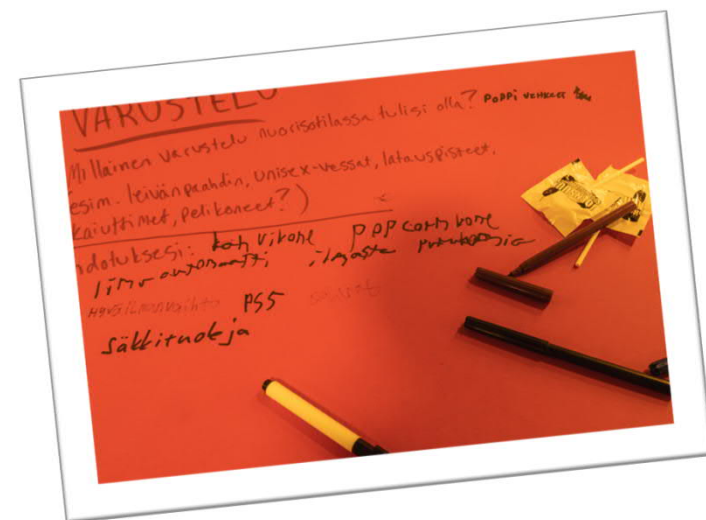 VARUSTELU
Millainen varustelu nuorisotilassa tulisi olla? POPPI VEHKEET
(esim. leivänpaahdin, unisex-vessat, latauspisteet,
kaiuttimet, pelikoneet?)
Ehdotuksesi: kahvikone POPcorn kone
limu automaatti ilmasta
HYVÄ ILMANVAIHTO PS5
säkkituoleja